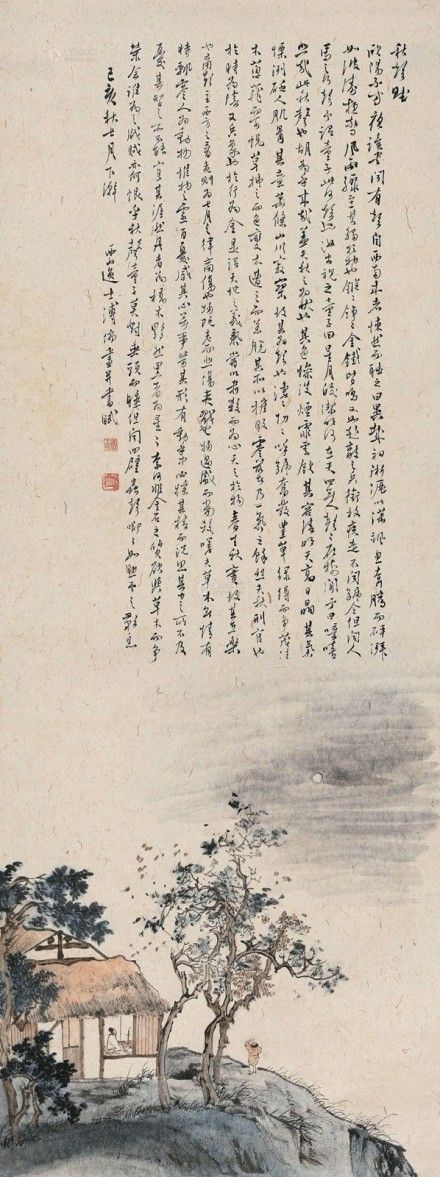 秋聲賦
歐陽子方夜讀書聞有聲自西南來者悚然而聽之曰異哉初淅瀝以瀟颯忽奔騰而砰湃
如波濤夜驚風雨驟至其觸於物也鏦鏦錚錚金鐵皆鳴又如赴敵之兵銜枚疾走不聞號令但聞人
馬之行聲予謂童子此何聲也汝出視之童子曰星月皎潔明河在天四無人聲聲在樹間予曰噫嘻
悲哉此秋聲也胡為乎來哉蓋夫秋之為狀也其色慘淡煙霏雲斂其容清明天高日晶其氣
慄冽砭人肌骨其意蕭條山川寂寥故其為聲也淒淒切切呼號奮發豐草綠縟而爭茂佳
木葱蘢而可悅草拂之而色變木遭之而葉脫其所以摧敗零落者乃一氣之餘烈夫秋刑官也
於時為陰又兵象也於行為金是謂天地之義氣常以肅殺而為心天之於物春生秋實故其在樂
也商聲主西方之音夷則為七月之律商傷也物既老而悲傷夷戮也物過盛而當殺嗟夫草木無情有
時飄零人為動物惟物之靈百憂感其心萬事勞其形有動乎中必搖其精而況思其力之所不及
憂其智之所不能宜其渥然丹者為槁木黟然黑者為星星奈何非金石之質欲與草木而爭
榮念誰為之戕賊亦何恨乎秋聲童子莫對垂頭而睡但聞四壁蟲聲唧唧如助予之歎息
己亥秋七月下澣 西山逸士溥儒畫并書賦